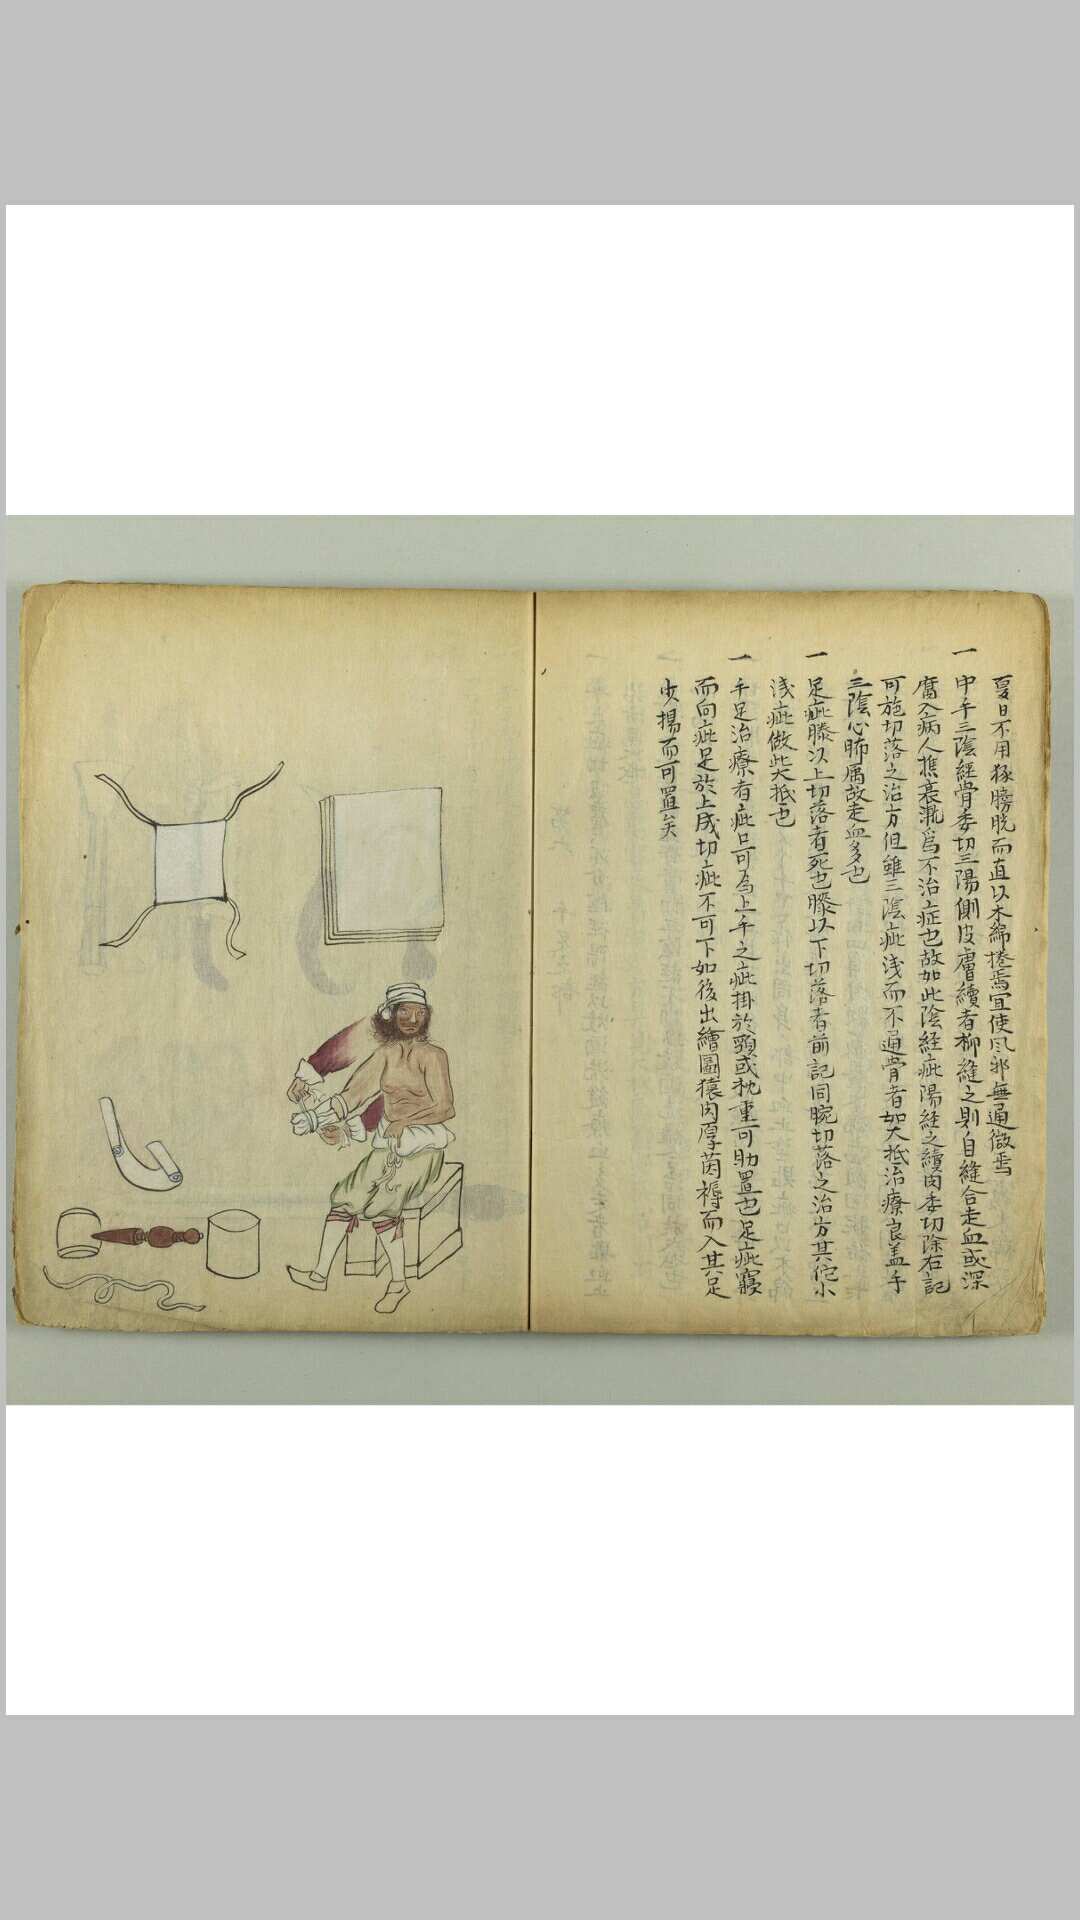 夏日不用豚膀胱而直以木綿捲焉宜使風邪無通徹焉
一 中手三陰経骨委切三陽側皮膚續者柳縫之則自縫合走血或深
腐入病人憔衰漸為不治症也故如此陰経疵陽経之續肉委切除右記
可施切落之治方但雖三陰疵浅而不通骨者如大抵治療良蓋手
三陰心肺属故走血多也
一 足疵膝以上切落者死也膝以下切落者前記同腕切落之治方其佗小
浅疵倣此大抵也
一 手足治療者疵口可為上手之疵掛於頸或枕重可助置也足疵寝
而向疵足於上成切疵不可下如後出繪圖猿肉厚茵褥而入其足
少揚而可置矣